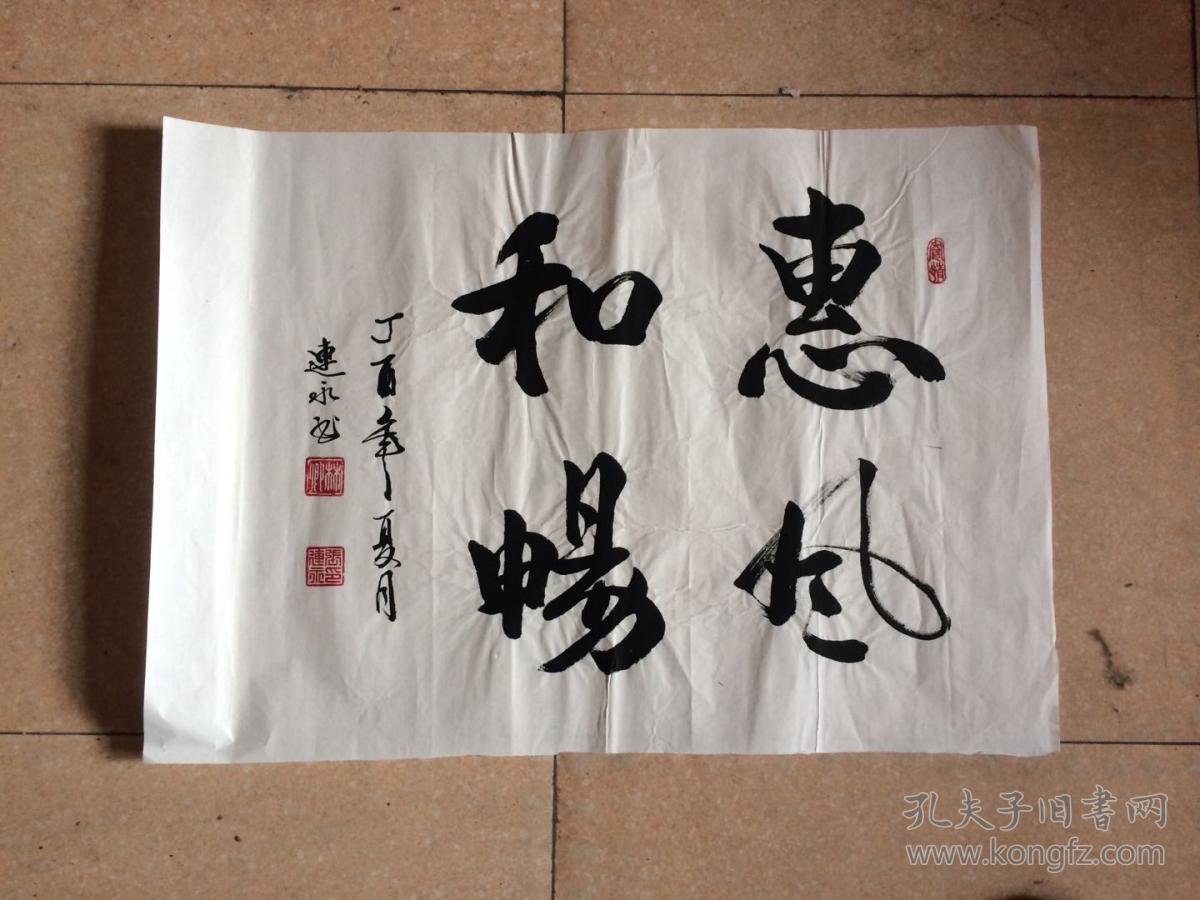 惠风
和暢
丁酉年夏月
連永书
張印連永
孔夫子旧书网
www.kongfz.com